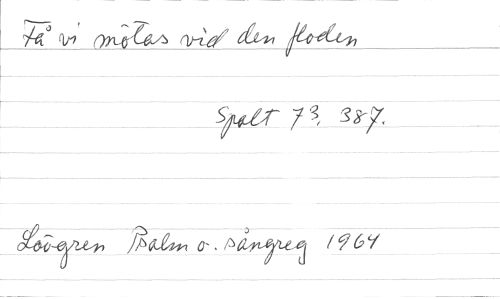 Få vi mötas vid den floden
Spalt 73, 387.
Lövgren Psalm o. sångreg 1964